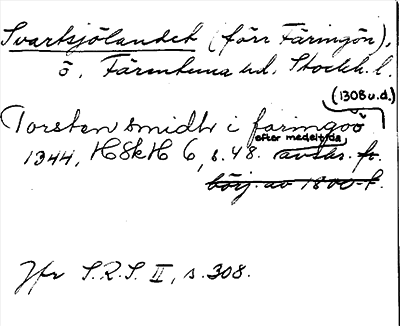 Svartsjölandet (förr Färingön),
ö, Färentuna hd, Stockh. l.
(1308 u.d.)
Torsten smidh i faringöö
efter medeltida
1344, HSkH 6, s. 48. avskr. fr.
börj. av 1800-t.
Jfr S.R.S. II, s. 308.